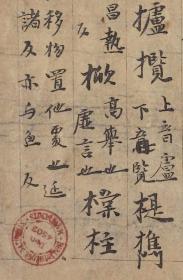 攎攬上音盧
下音覽提攜
昌熱
反掀高舉也
虛言也棠柱
移物置他處也延
諸反亦与魚反